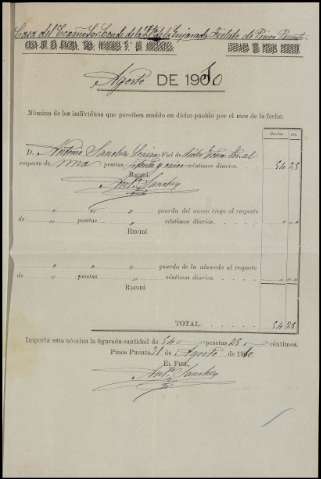 Casa del Excmo Sor Conde de la
Agosto DE 1900
Nómina de los individuos que perciben sueldo en dicho pueblo por el mes de la fecha.
Pesetas Cts.
D. Antonio Sanchez
respecto de una pesetas setenta y cinco céntimos diarios. 54 25
RECIBÍ
Antº Sanchez
" " " guarda del monte ciego al respecto
de " pesetas " céntimos diarios. " "
RECIBÍ
" " " guarda de la alameda al respecto
de " pesetas " céntimos diarios. " "
RECIBÍ
TOTAL 54 25
Importa esta nómina la figurada cantidad de 54 pesetas 25 céntimos.
Pinos Puente 31 de Agosto de 1900
EL FIEL,
Antº Sanchez